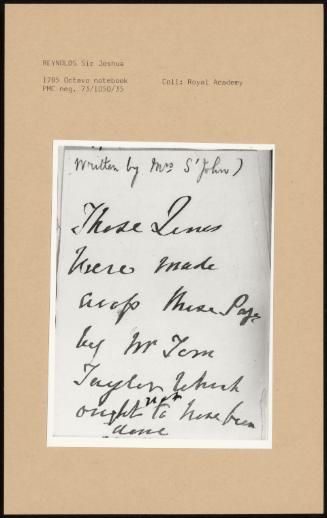 REYNOLDS Sir Joshua
1785 Octavo notebook
Coll: Royal Academy
PMC neg. 73/1050/35
Written by Mrs S'John)
Those Lines
Were made
across these Page
by Mr Tom
Taylor which
ought not to have been
done